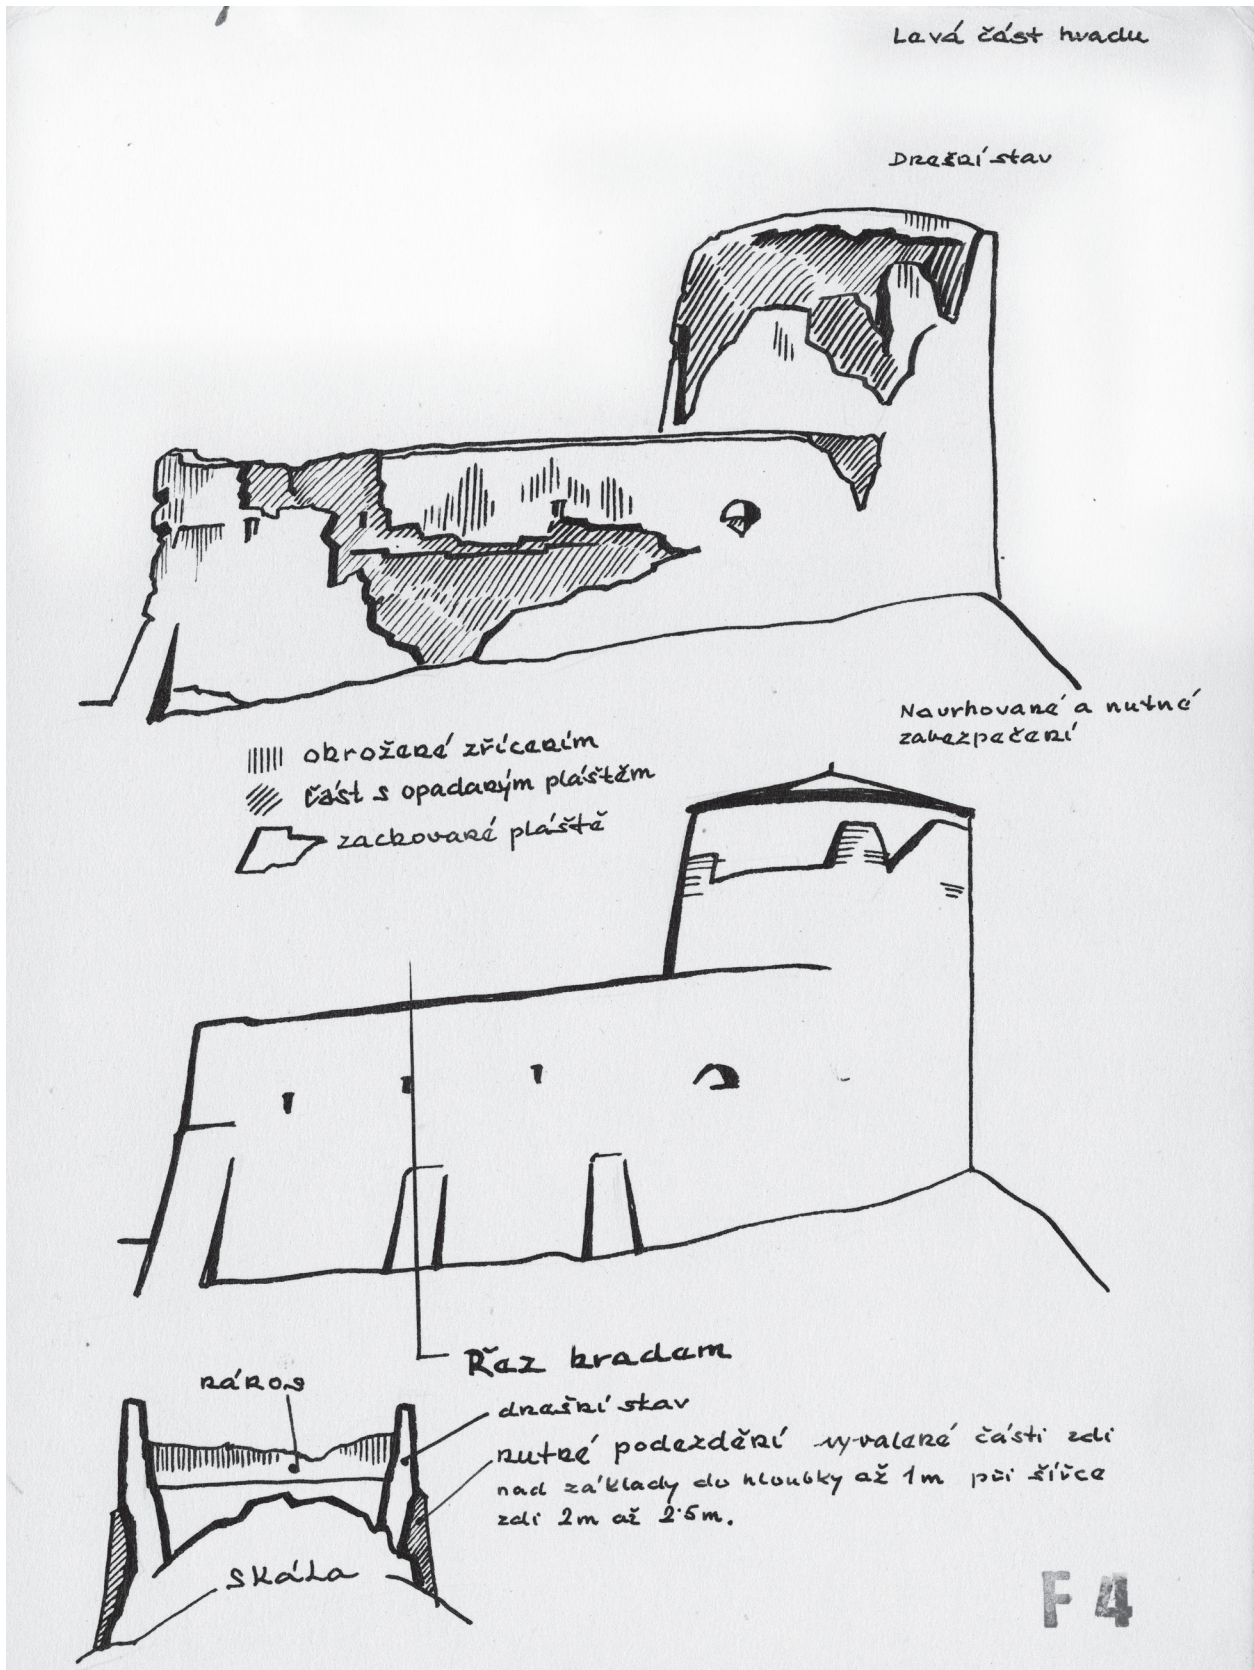 Levá část hradu
Dnešní stav
Navrhované a nutné
zabezpečení
ohrožené zřícením
část s opadaným pláštěm
zachované pláště
Řez hradem
nános
dnešní stav
nutné podezdění vyvalené části zdi
nad základy do hloubky až 1m při šířce
zdi 2m až 2.5m.
skála
F 4